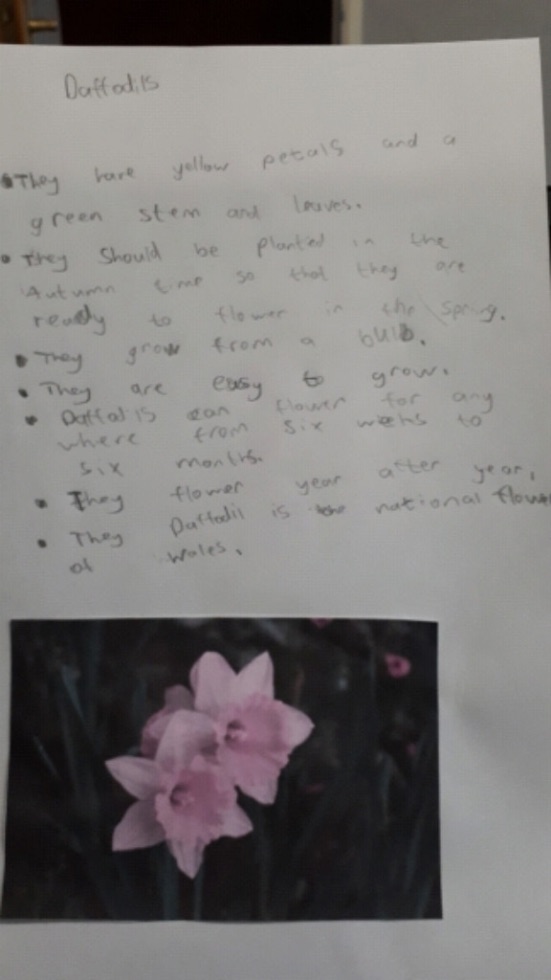 Daffodils
• They have yellow petals and a
green stem and leaves.
• They should be planted in the
Autumn time so that they are
ready to flower in the spring.
• They grow from a bulb.
• They are easy to grow.
• Daffodils can flower for any
where from six weeks to
six months.
• They flower year after year,
• They Daffodil is the national flower
of wales.